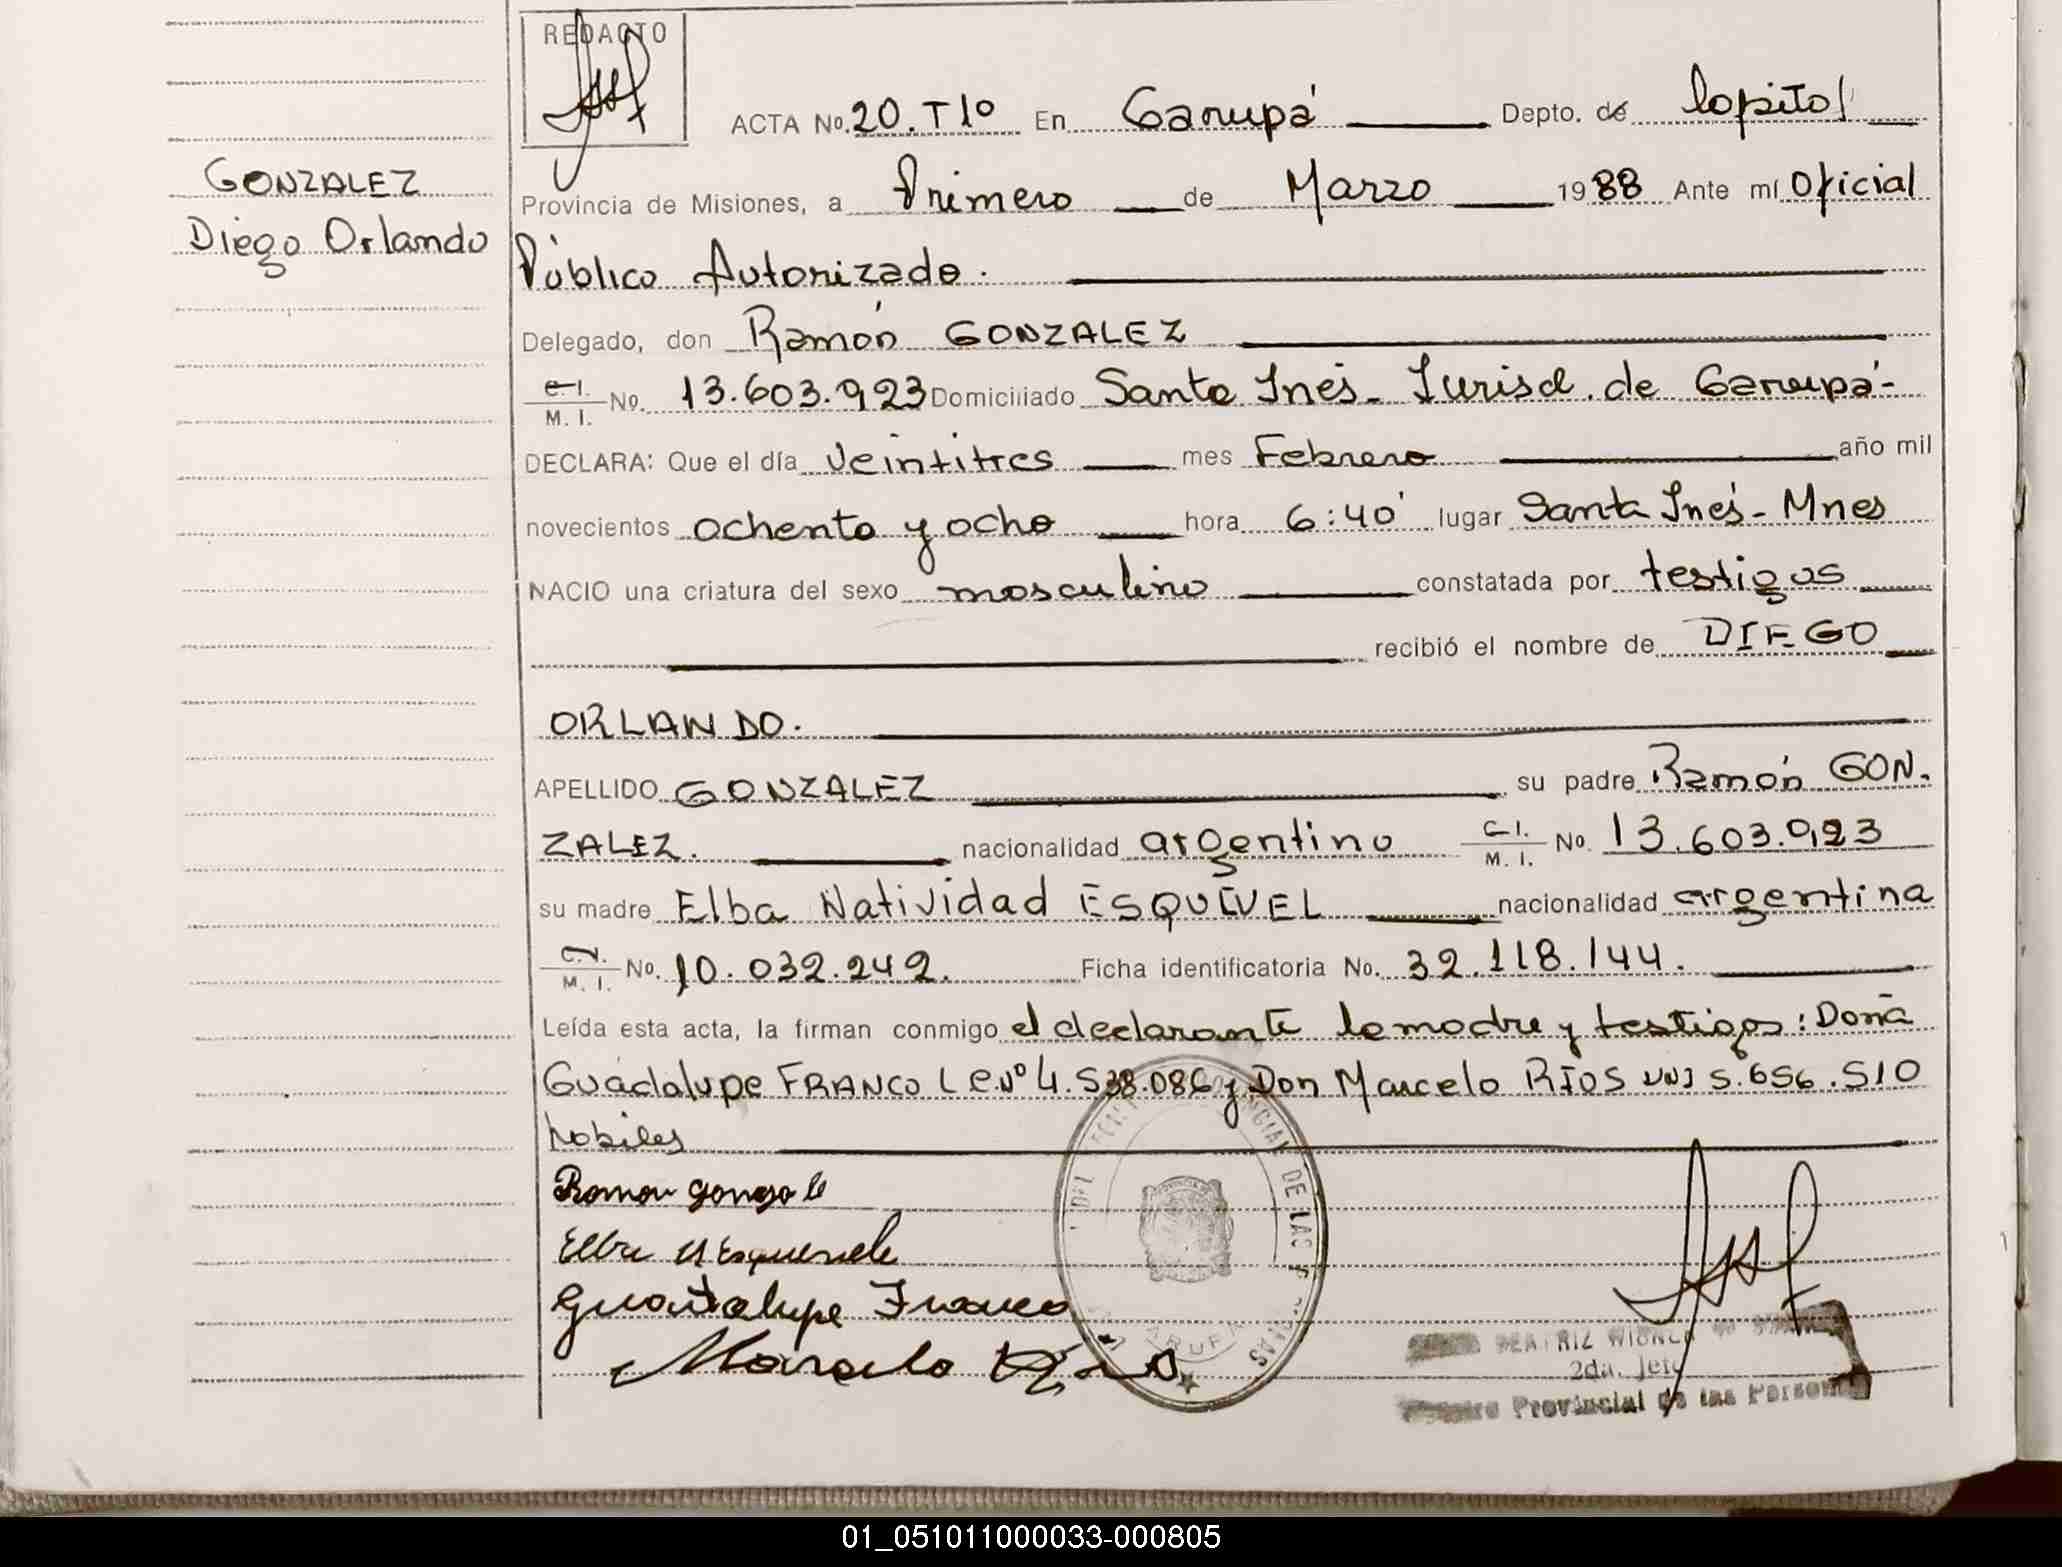 REDACTO
ACTA No. 20.T1º En Garupá Depto. de Capital
GONZALEZ
Diego Orlando
Provincia de Misiones, a Primero de Marzo 1988 Ante mí Oficial
Público Autorizado.
Delegado, don Ramón GONZALEZ
C.I. M.I. No. 13.603.923 Domiciliado Santa Inés - Jurisd. de Garupá-
DECLARA: Que el día veintitres mes Febrero año mil
novecientos ochenta y ocho hora 6:40' lugar Santa Inés - Mnes
NACIO una criatura del sexo masculino constatada por testigos
recibió el nombre de DIEGO
ORLANDO.
APELLIDO GONZALEZ su padre Ramón GON.
ZALEZ. nacionalidad argentino C.I. M.I. No. 13.603.923
su madre Elba Natividad ESQUIVEL nacionalidad argentina
M.I. No. 10.032.242. Ficha identificatoria No. 32.118.144.
Leída esta acta, la firman conmigo el declarante la madre y testigos: Doña
Guadalupe FRANCO L C.Nº 4.538.086 y Don Marcelo RIOS DNI 5.656.510
hábiles
Ramon
Elba N
Guadalupe Franco
Marcelo Rios
DE LAS
BEATRIZ
2da. Jefe
Provincial de las Personas
01_051011000033-000805